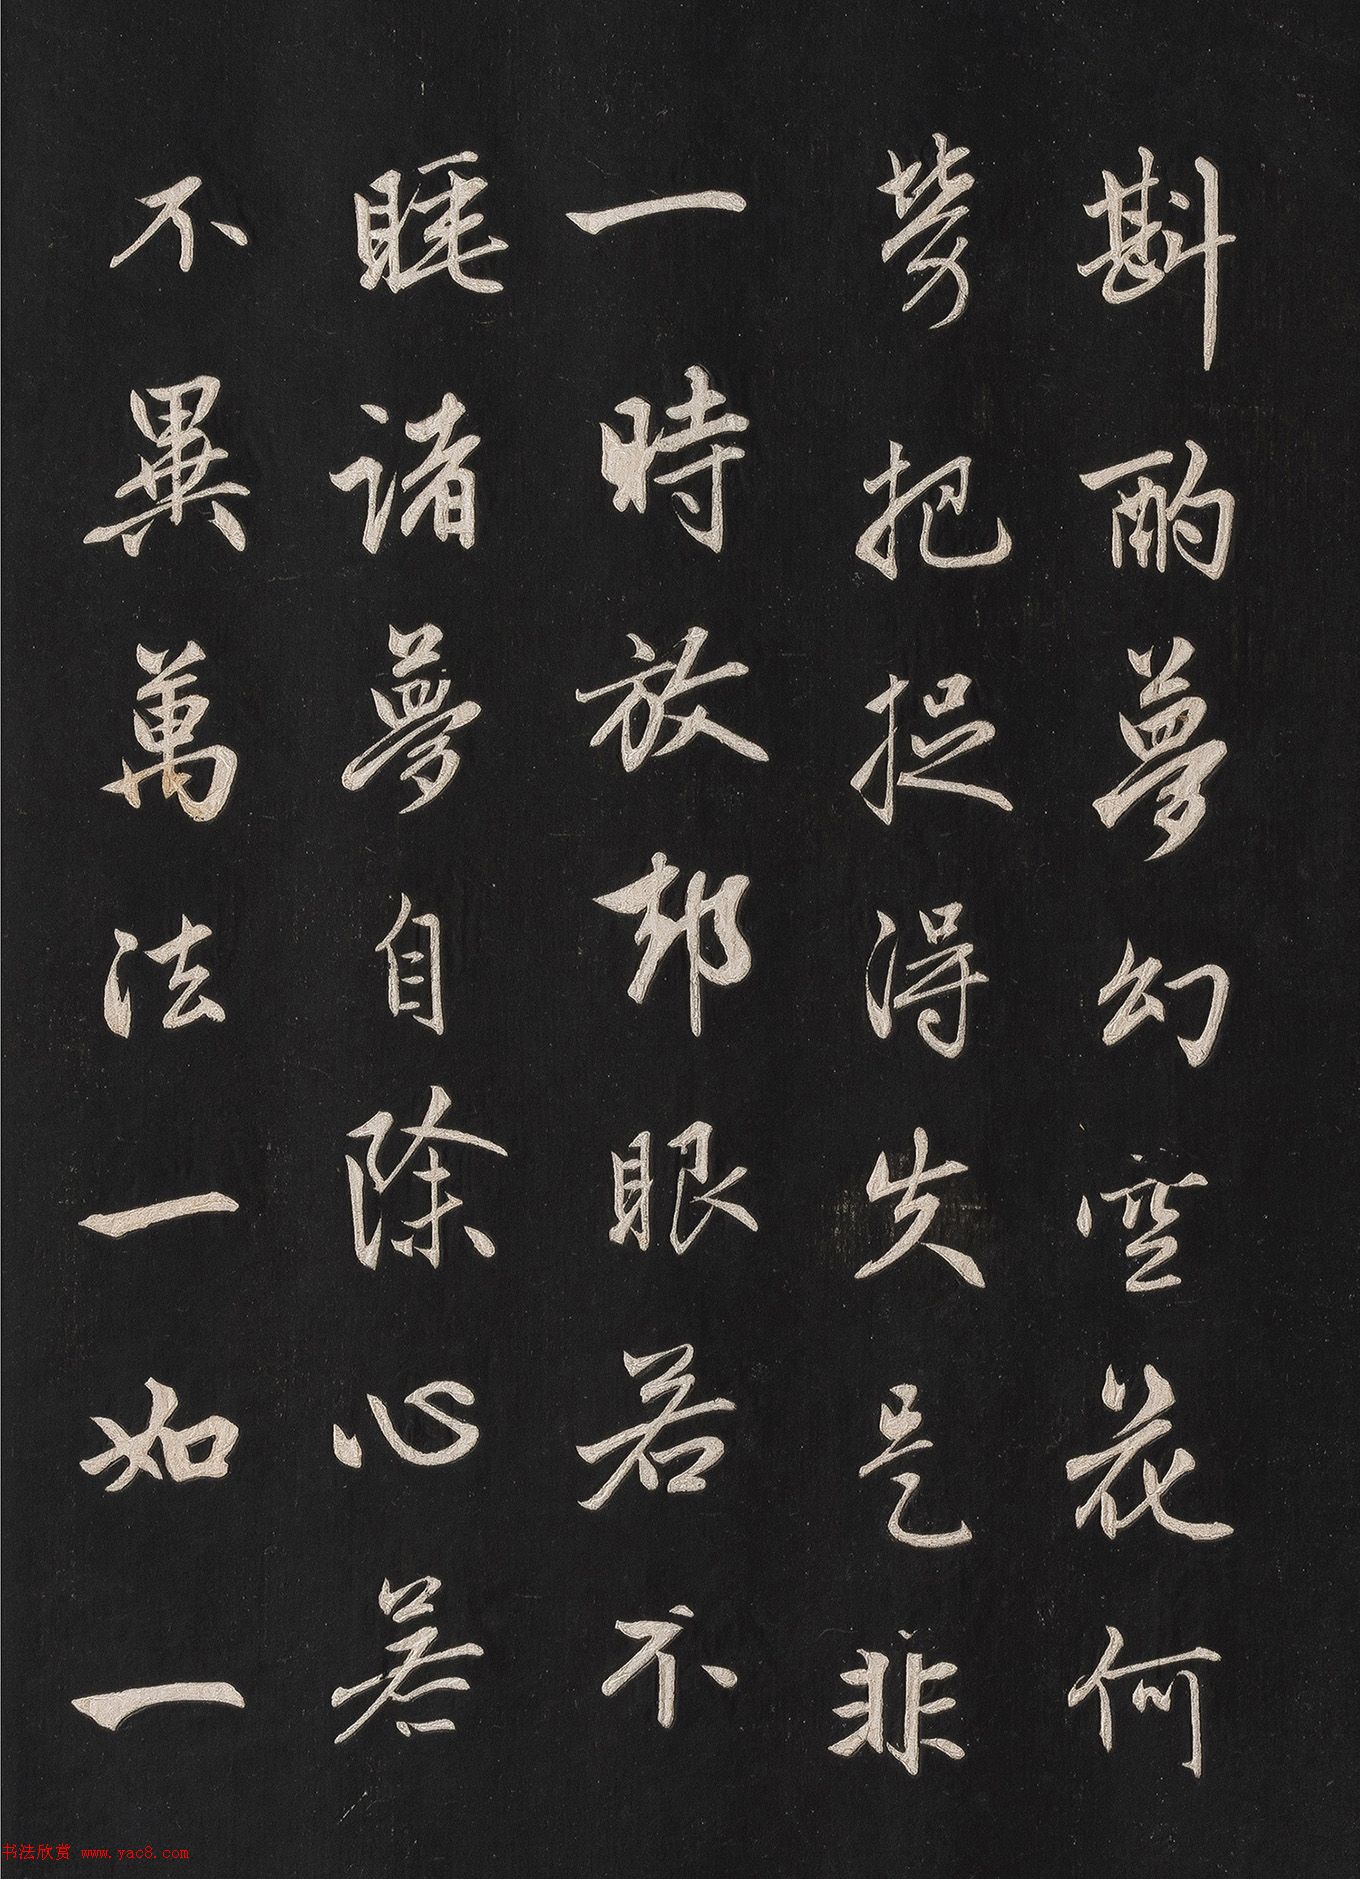 斟酌夢幻空花何
勞把捉得失是非
一時放却眼若不
睡諸夢自除心若
不異萬法一如一
书法欣赏 www.yac8.com